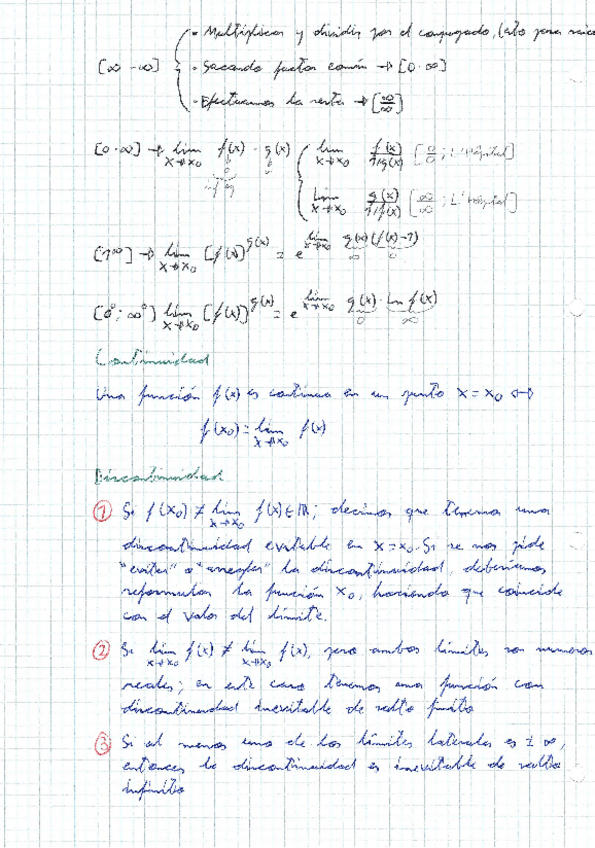 [∞ - ∞] { • Multiplicar y dividir por el conjugado, (esto para raíces
• Sacando factor común → [0·∞]
• Efectuamos la resta → [∞/∞]
[0·∞] → lim x→x₀ f(x) · g(x) { lim x→x₀ f(x)/1/g(x) [0/0; L'Hôpital]
lim x→x₀ g(x)/1/f(x) [∞/∞; L'Hôpital]
[1^∞] → lim x→x₀ [f(x)]^g(x) = e^lim x→x₀ g(x)(f(x)-1)
∞ 0
[0⁰; ∞⁰] lim x→x₀ [f(x)]^g(x) = e^lim x→x₀ g(x)·Ln f(x)
0 ∞
Continuidad
Una función f(x) es continua en un punto x = x₀ ↔
f(x₀) = lim x→x₀ f(x)
Discontinuidad
① Si f(x₀) ≠ lim x→x₀ f(x) ∈ ℝ; decimos que tenemos una
discontinuidad evitable en x=x₀. Si se nos pide
"evitar" o "arreglar" la discontinuidad, deberíamos
reformular la función x₀, haciendo que coincide
con el valor del límite.
② Si lim x→x₀ f(x) ≠ lim x→x₀ f(x), pero ambos límites son números
reales; en este caso tenemos una función con
discontinuidad inevitable de salto finito
③ Si al menos uno de los límites laterales es ± ∞,
entonces la discontinuidad es inevitable de salto
infinito